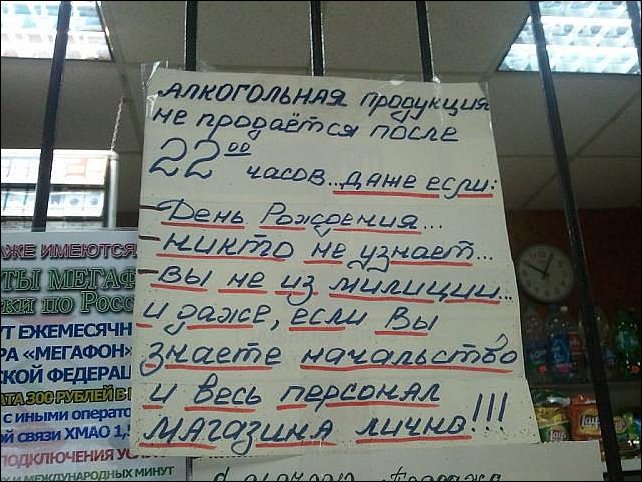 АЛКОГОЛЬНАЯ продукция
не продаётся после
22⁰⁰ часов...даже если:
– День Рождения...
– никто не узнает...
– вы не из милиции...
и даже, если Вы
знаете начальство
и весь персонал
магазина лично!!!
АЖЕ ИМЕЮТСЯ
ТЫ МЕГАФ
ки по Росс
УТ ЕЖЕМЕСЯЧН
РА «МЕГАФОН»
СКОЙ ФЕДЕРАЦ
АТА 300 РУБЛЕЙ В
с иными операто
ой связи ХМАО 1,5
ПОДКЛЮЧЕНИЯ УСЛ
И МЕЖДУНАРОДНЫХ МИНУТ
Lay's